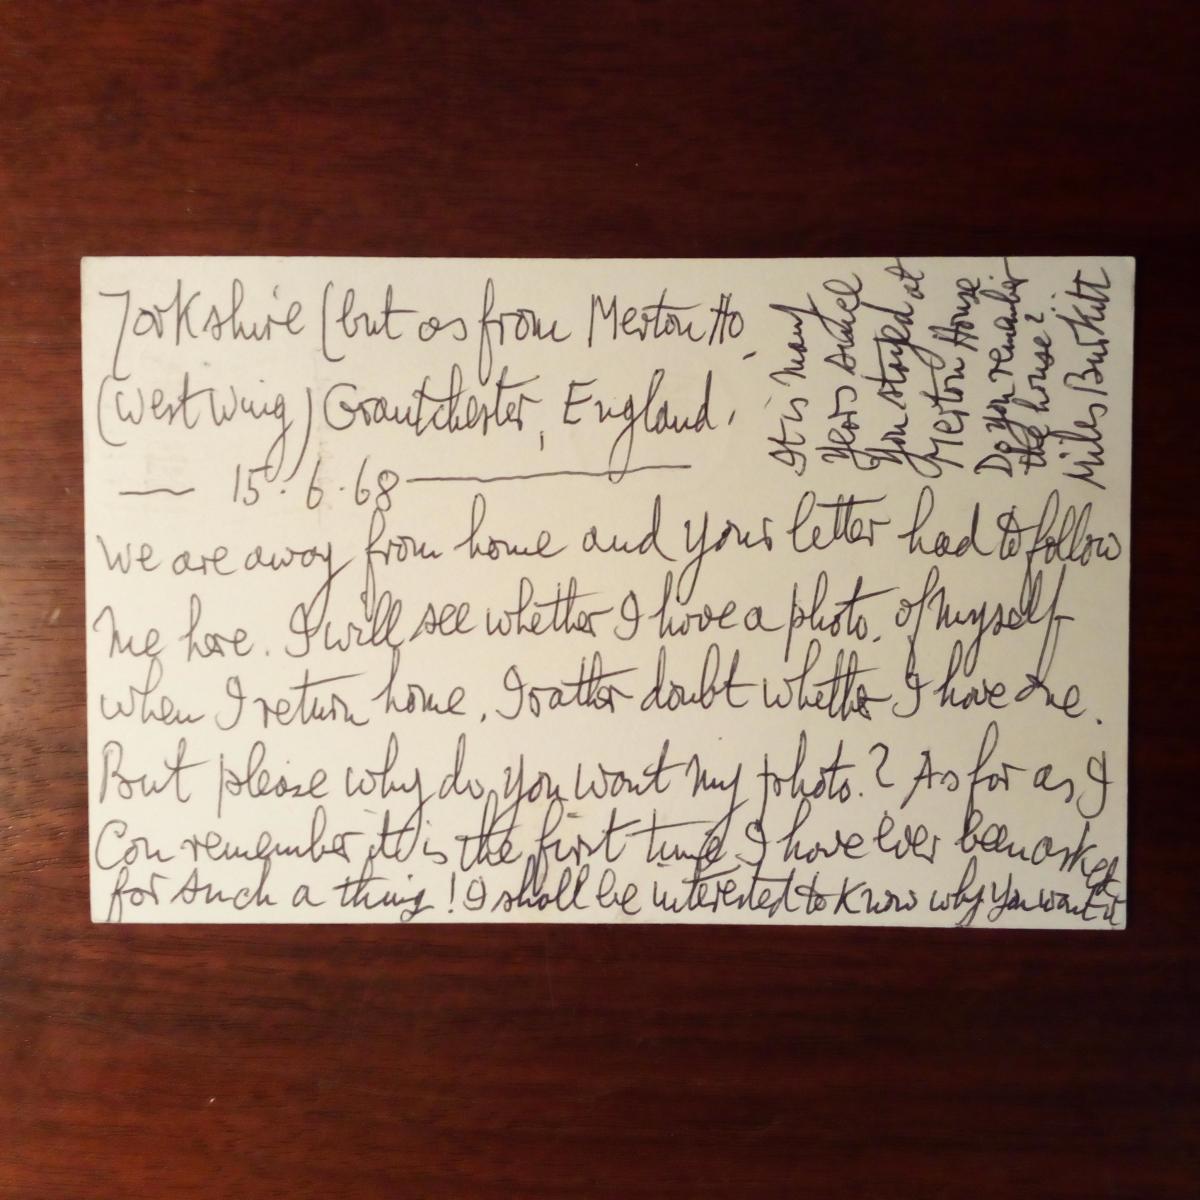 Yorkshire (but as from Merton Ho,
(West Wing) Grantchester, England.
— 15.6.68 —
We are away from home and your letter had to follow
me here. I will see whether I have a photo. of myself
when I return home. I rather doubt whether I have one.
But please why do you want my photo.? As far as I
can remember it is the first time I have ever been asked
for such a thing! I shall be interested to know why you want it
It is many
years since
you stayed at
Merton House
Do you remember
the house?
Miles Burkitt